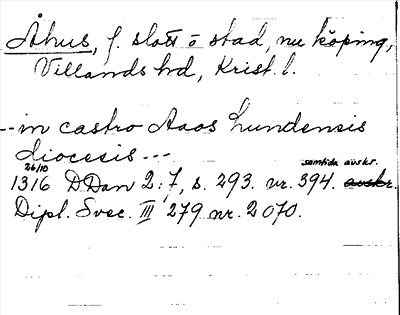 Åhus, f. slott o stad, nu köping,
Villands hd, Krist. l.
--in castro Aaos Lundensis
diocesis ---
26/10 samtida avskr.
1316 DDan 2:7, s. 293. nr. 394. avskr.
Dipl. Svec. III 279 nr. 2070.